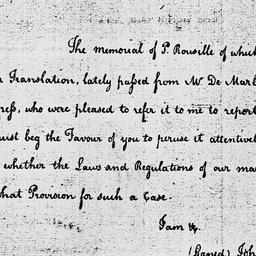 The memorial of P. Rouville of which
Translation, lately passed from Mr De Marb
ress, who were pleased to refer it to me to report
ust beg the Favour of you to peruse it attentivel
whether the Laws and Regulations of our ma
hat Provision for such a Case.
I am &c.
(Signed) Joh